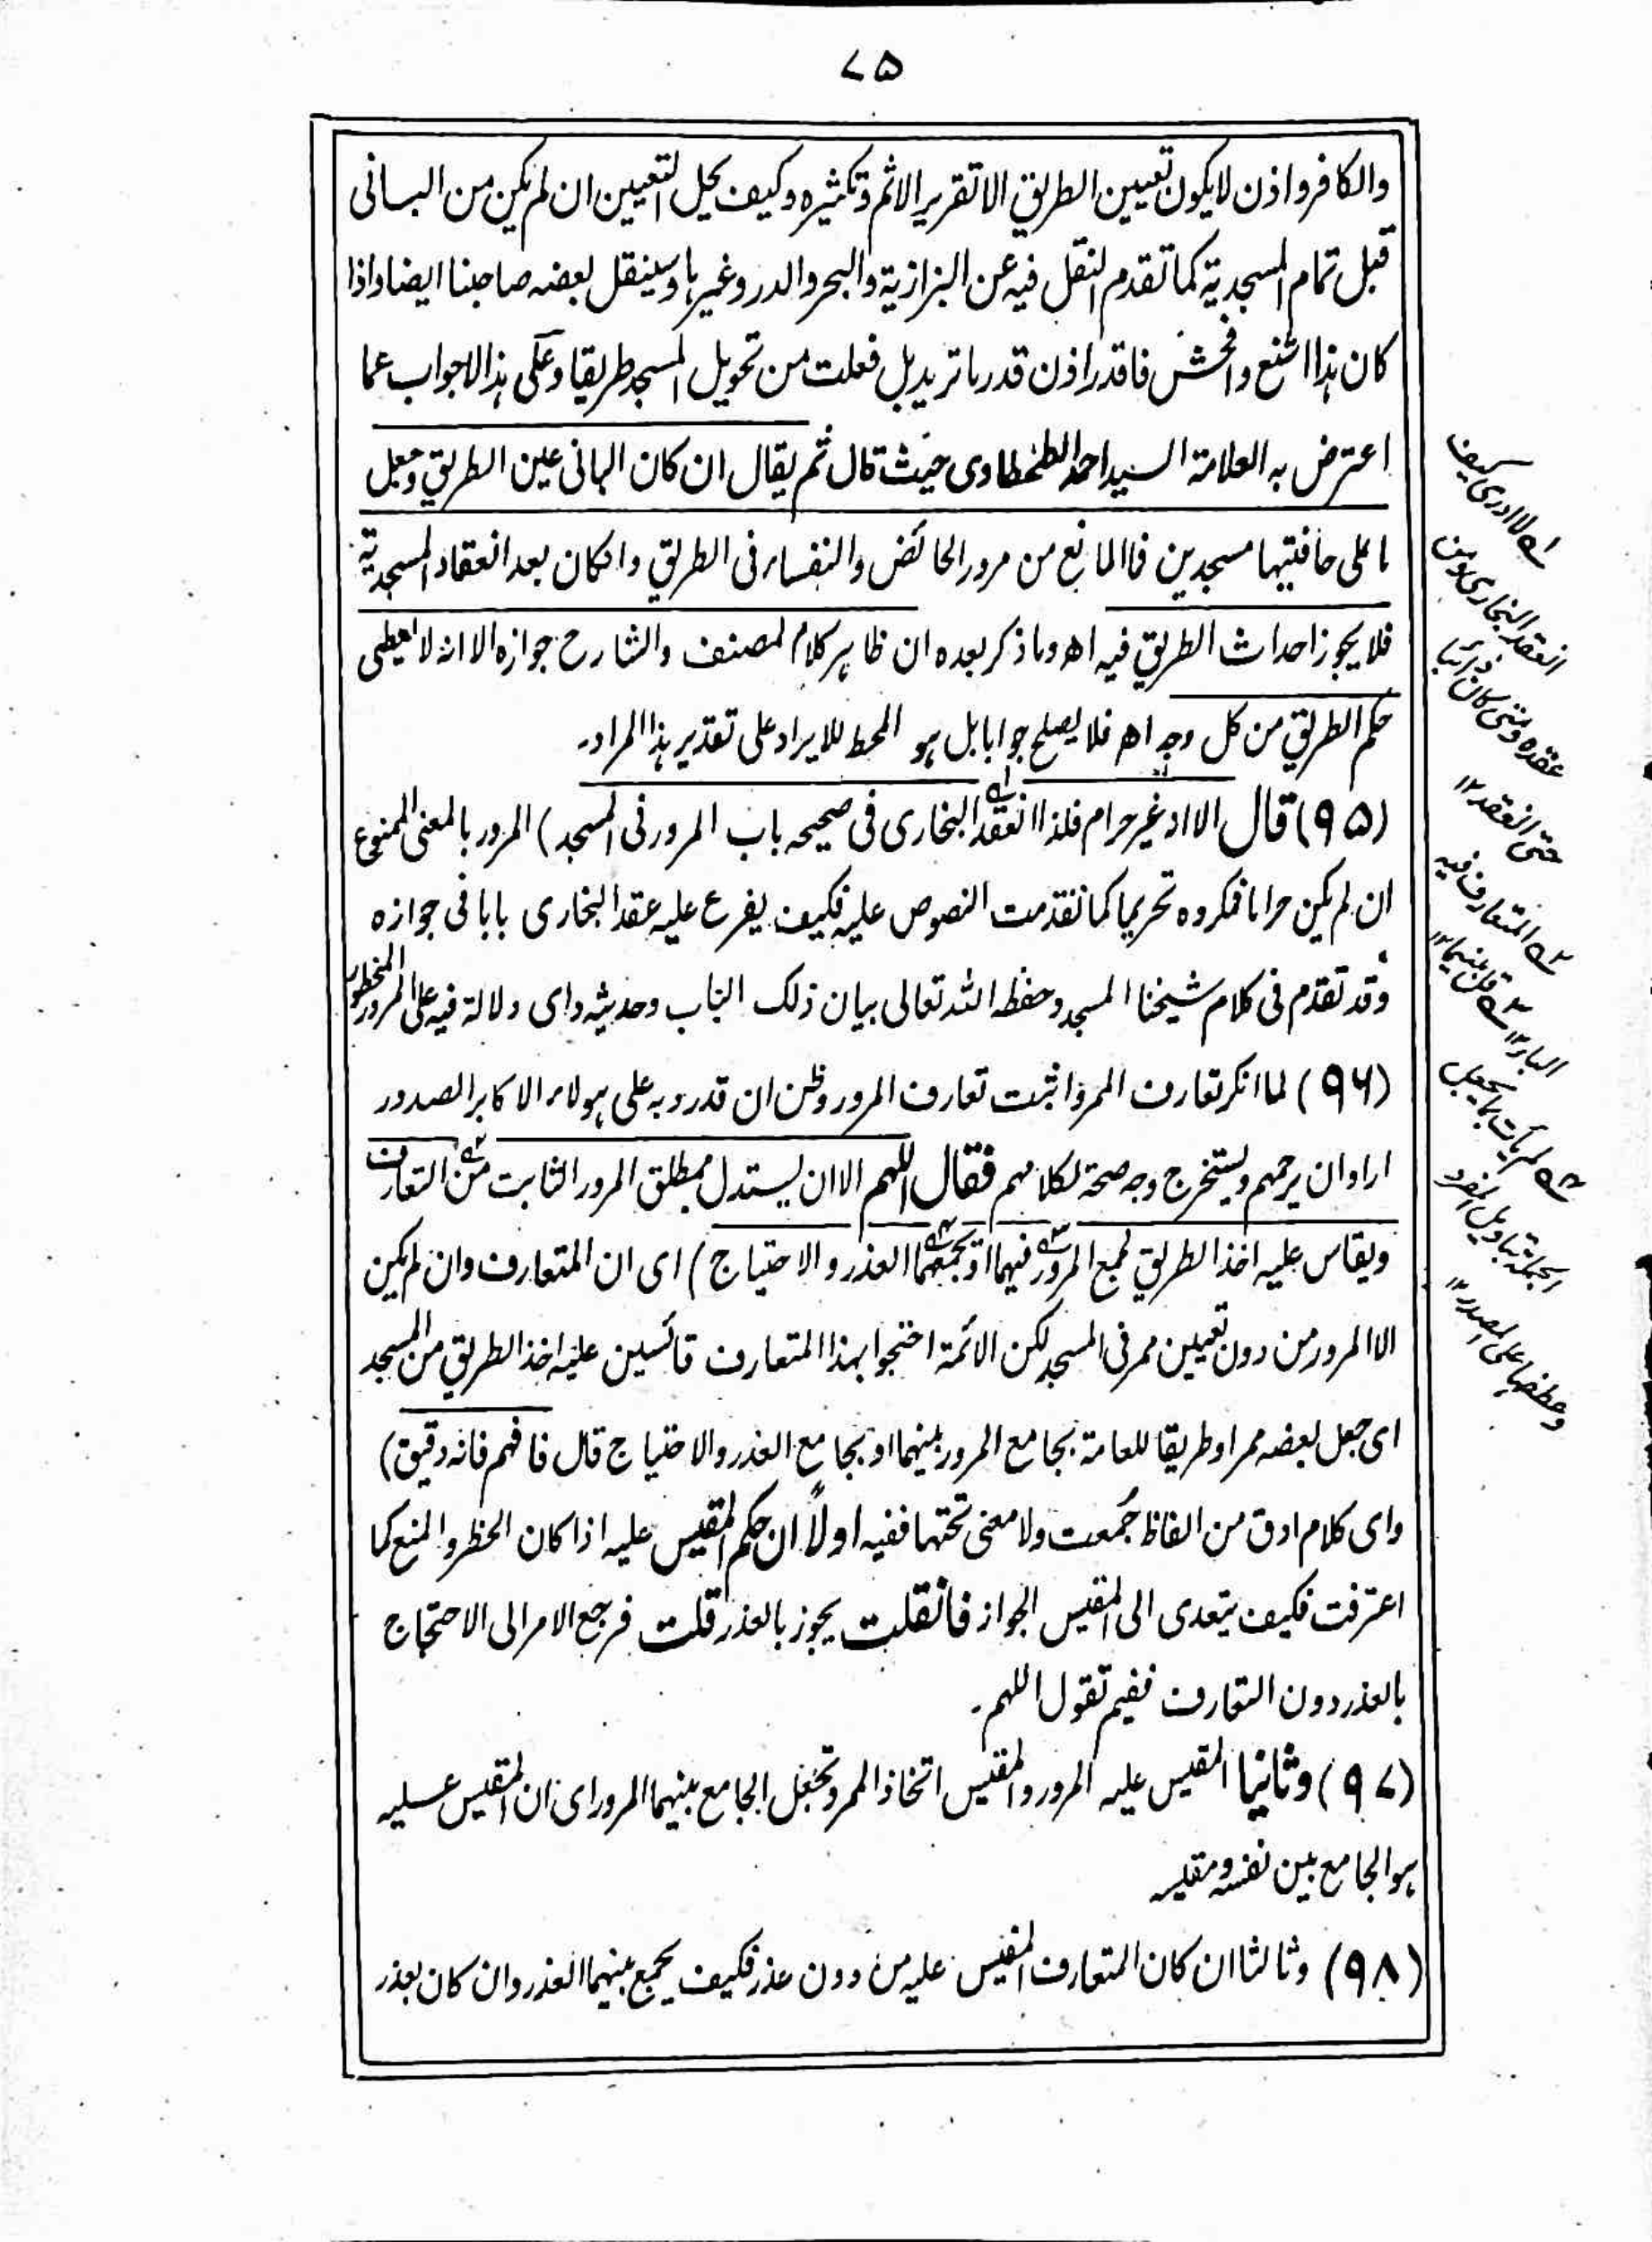 ۷۵
والکافر واذن لایکون تعیین الطریق الا تقریر الاثم وتکثیره وکیف یحل التعیین ان لم یکن من البانی
قبل تمام المسجدیۃ کما تقدم النقل فیه عن البزازیۃ والبحر والدر وغیرہا وسینقل بعضه صاحبنا ایضا واذا
کان ہذا اشنع وافحش فاقدر اذن قدر ما ترید بل فعلت من تحویل المسجد طریقا وعلی ہذا لاجواب عما
اعترض به العلامۃ السید احمد الطحطاوی حیث قال ثم یقال ان کان البانی عین الطریق وجعل
ما علی حافتیہا مسجدین فما المانع من مرور الحائض والنفساء فی الطریق وان کان بعد انعقاد المسجدیۃ
فلا یجوز احداث الطریق فیه اھ وما ذکر بعده ان ظاہر کلام المصنف والشارح جوازه الا انه لا یعطی
حکم الطریق من کل وجه اھ فلا یصلح جوابا بل ہو المحط للایراد علی تقدیر ہذا المراد۔
(۹۵) قال الا اد غیر حرام فلذا انعقد البخاری فی صحیحه باب المرور فی المسجد) المرور بالمعنی الممنوع
ان لم یکن حراما فمکروه تحریما کما تقدمت النصوص علیه فکیف یفرع علیه عقد البخاری بابا فی جوازه
وقد تقدم فی کلام شیخنا المسجد وحفظه اللہ تعالی بیان ذلک الباب وحدیثه وای دلالۃ فیه علی المرور المحظور
(۹۶) لما انکر تعارف الممر واثبت تعارف المرور وظن ان قد رد به علی ہولاء الاکابر الصدور
اراد ان یرحمہم ویستخرج وجه صحۃ لکلامہم فقال اللہم الا ان یستدل بمطلق المرور الثابت من التعارف
ویقاس علیه اخذ الطریق لجمع المرور فیہما او یجمعہما العذر والاحتیاج) ای ان المتعارف وان لم یکن
الا المرور من دون تعیین ممر فی المسجد لکن الائمۃ احتجوا بہذا المتعارف قائسین علیه اخذ الطریق من المسجد
ای جعل بعضه ممرا وطریقا للعامۃ بجامع المرور بینہما او بجامع العذر والاحتیاج قال فافہم فانه دقیق)
وای کلام ادق من الفاظ جمعت ولا معنی تحتہا ففیه اولًا ان حکم المقیس علیه اذا کان الحظر والمنع کما
اعترفت فکیف یتعدی الی المقیس الجواز فانقلت یجوز بالعذر قلت فرجع الامر الی الاحتجاج
بالعذر دون التعارف ففیم تقول اللہم۔
(۹۷) وثانیا المقیس علیه المرور والمقیس اتخاذ الممر وتجعل الجامع بینہما المرور ای ان المقیس علیه
ہو الجامع بین نفسه ومقیسه
(۹۸) وثالثا ان کان المتعارف المقیس علیه من دون عذر فکیف یجمع بینہما العذر وان کان بعذر
لا ادری کیف
انعقد البخاری ومن
عقده ومتی کان ذائبا
حتی انعقد ۱۲
المتعارف فیه
الباء ۱۲ قل بینہما ۱۲
لم یأت بما یجعل
الجملۃ بتاویل المفرد
وعطفہا علی المصدر ۱۲